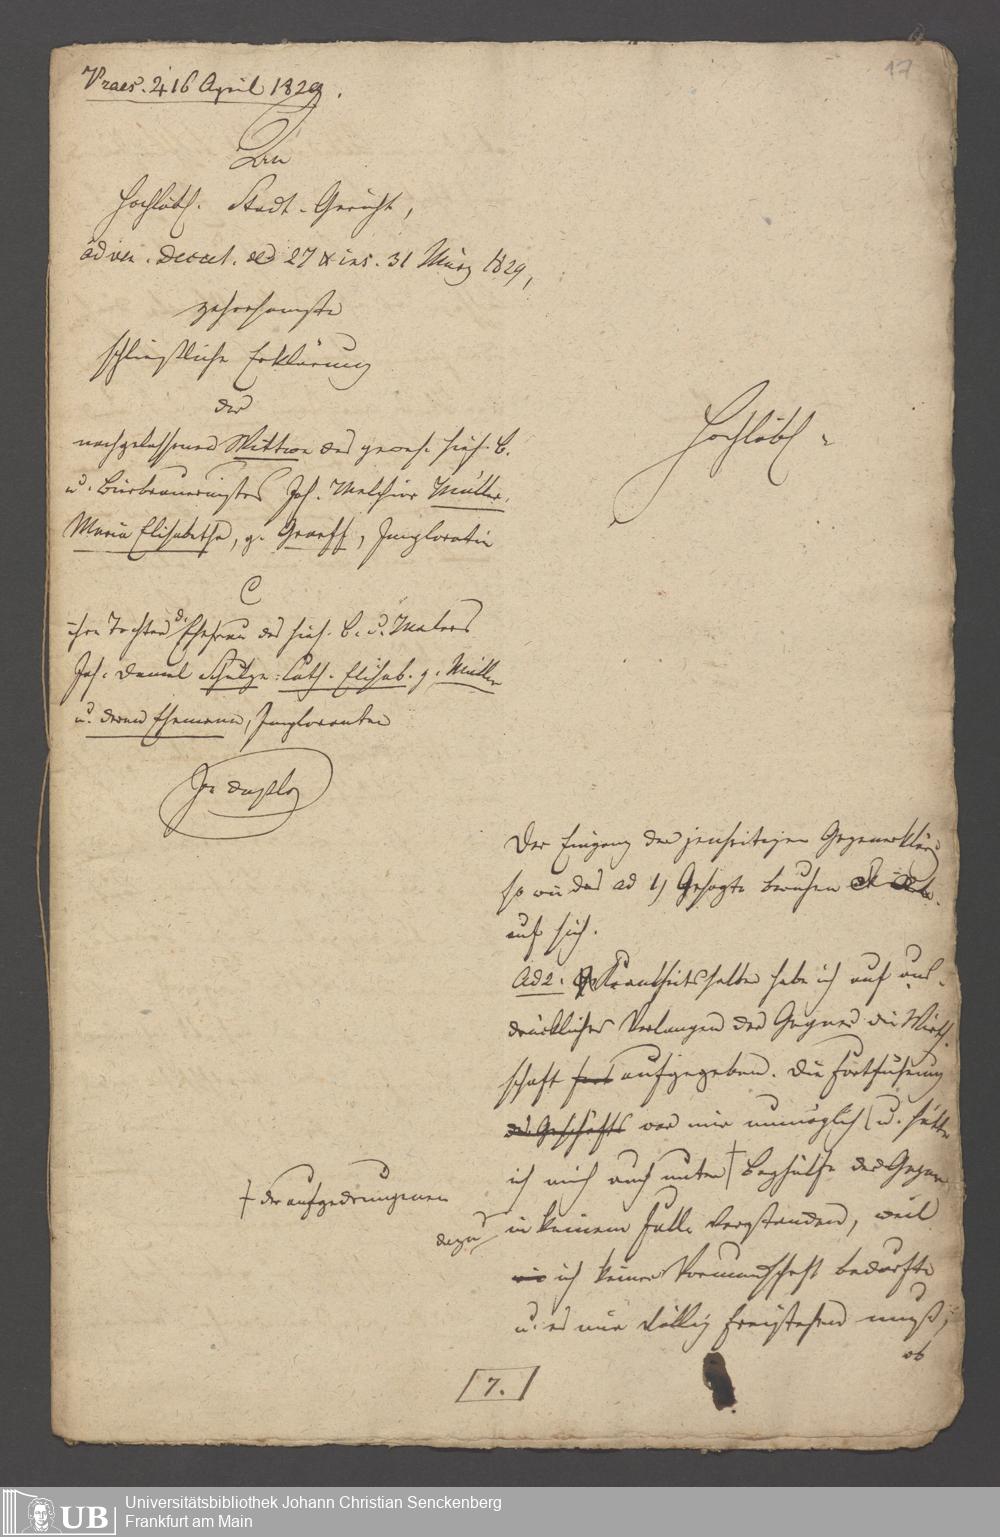 17
Praes. 16 April 1829.
An
Hochlöbl. Stadt-Gericht,
ad ven. Decret. de 27 & ins. 31 März 1829,
gehorsamste
schließliche Erklärung
der
nachgelassenen Wittwe des gewes. hies. B.
u. Bierbrauermeisters Joh. Melchior Müller,
Maria Elisabetha, g. Graeff, Imploratin
C
ihre Tochter d. Ehefrau des hies. B. u. Malers
Joh. Daniel Schulze: Cath. Elisab. g. Müller
u. deren Ehemann, Imploranten
In duplo
Hochlöbl
Der Eingang der jenseitigen Gegenerklär
so wie das ad 1) Gesagte beruhen
auf sich.
Ad 2. Krankheitshalber habe ich auf aus-
drückliches Verlangen der Gegner die Wirth-
schaft aufgegeben. Die Fortführung
des Geschäfts war mir unmöglich u. hätte
ich mich auch unter † Beyhülfe der Gegner
† der aufgedrungenen
dazu
in keinem Falle verstanden, weil
ich keiner Vormundschaft bedurfte
u. es mir völlig freistehen muß,
ob
7.
UB
Universitätsbibliothek Johann Christian Senckenberg
Frankfurt am Main